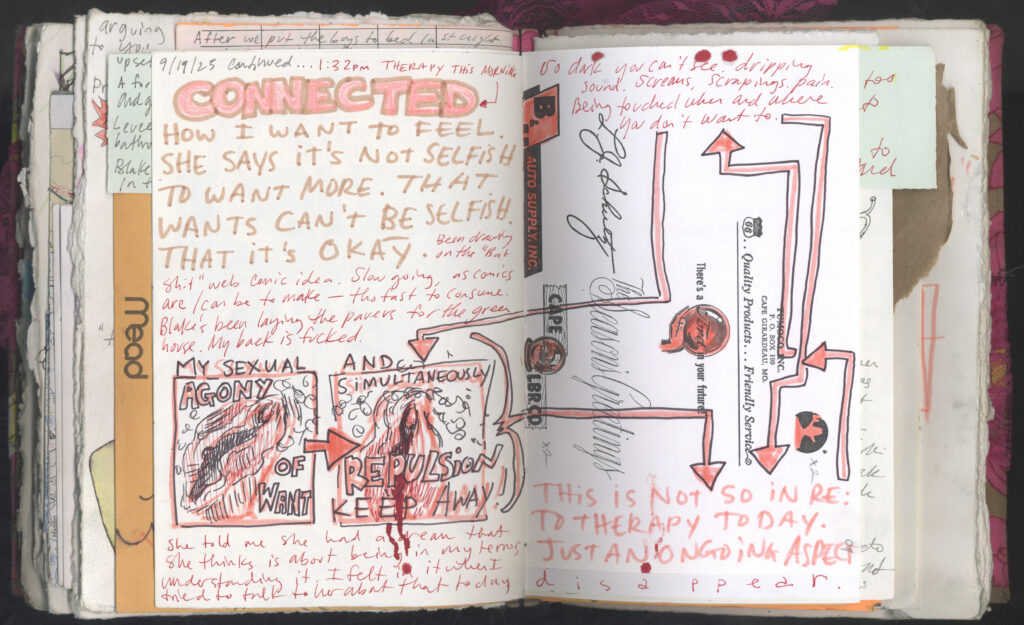 arguing
to you
upset
After we put the boys to bed last night
9/19/25 continued... 1:32pm THERAPY THIS MORNING
CONNECTED
HOW I WANT TO FEEL.
SHE SAYS IT'S NOT SELFISH
TO WANT MORE. THAT
WANTS CAN'T BE SELFISH.
THAT IT'S OKAY.
Been drawing
on the "Bat
shit" web comic idea. Slow going, as comics
are/can be to make — tho fast to consume.
Blake's been laying the pavers for the green
house. My back is fucked.
MY SEXUAL
AGONY
OF
WANT
AND
SIMULTANEOUSLY
REPULSION
KEEP AWAY
She told me she had a dream that
she thinks is about being in my terror,
understanding it. I felt it when I
tried to talk to her about that today
mead
Blake
in
So dark you can't see. dripping
sound. Screams, scrapings, pain.
Being touched when and where
you don't want to.
B.
AUTO SUPPLY, INC.
CAPE
LBR. CO
x2
The Season's Greetings
There's a
in your future!
66
... Quality Products... Friendly Service
TUMOCO INC.
P. O. BOX 109
CAPE GIRARDEAU, MO.
x2
THIS IS NOT SO IN RE:
TO THERAPY TODAY.
JUST AN ONGOING ASPECT
disappear.
too
to